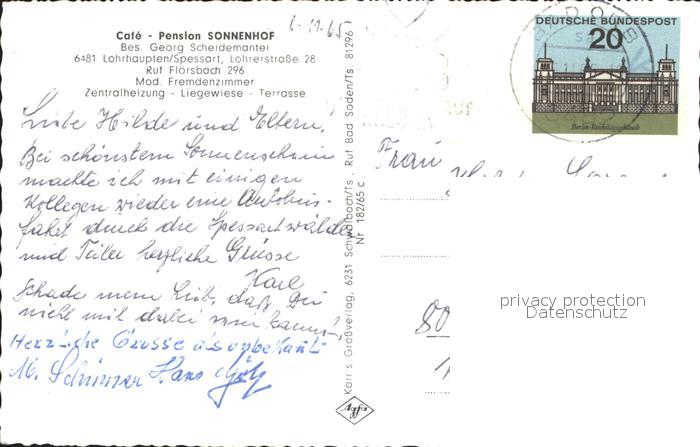 1-11-65
Café - Pension SONNENHOF
Bes. Georg Scheidemantel
6481 Lohrhaupten/Spessart, Lohrerstraße 28
Ruf Flörsbach 296
Mod. Fremdenzimmer
Zentralheizung - Liegewiese - Terrasse
Liebe Hilde und Eltern,
Bei schönstem Sonnenschein
machte ich mit einigen
Kollegen wieder eine Autobus-
fahrt durch die Spessartwälder
und herzliche Grüsse
Karl
Schade mein Lieb, daß Du
nicht mit dabei sein kannst!
Herzliche Grüsse als unbekannt
M. Hans
Korr s Großverlag, 6231 Schwalbach/Ts. Ruf Bad Soden/Ts. 81296
Nr 182/65 c
Agfa
DEUTSCHE BUNDESPOST
20
Berlin-Reichstagsgebäude
Frau
80
1
privacy protection
Datenschutz